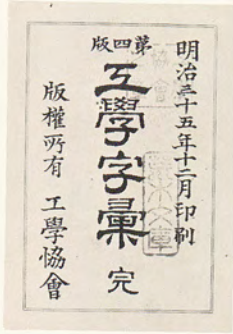 明治三十五年十二月印刷
第四版
工學字彙 完
版權所有 工學協會